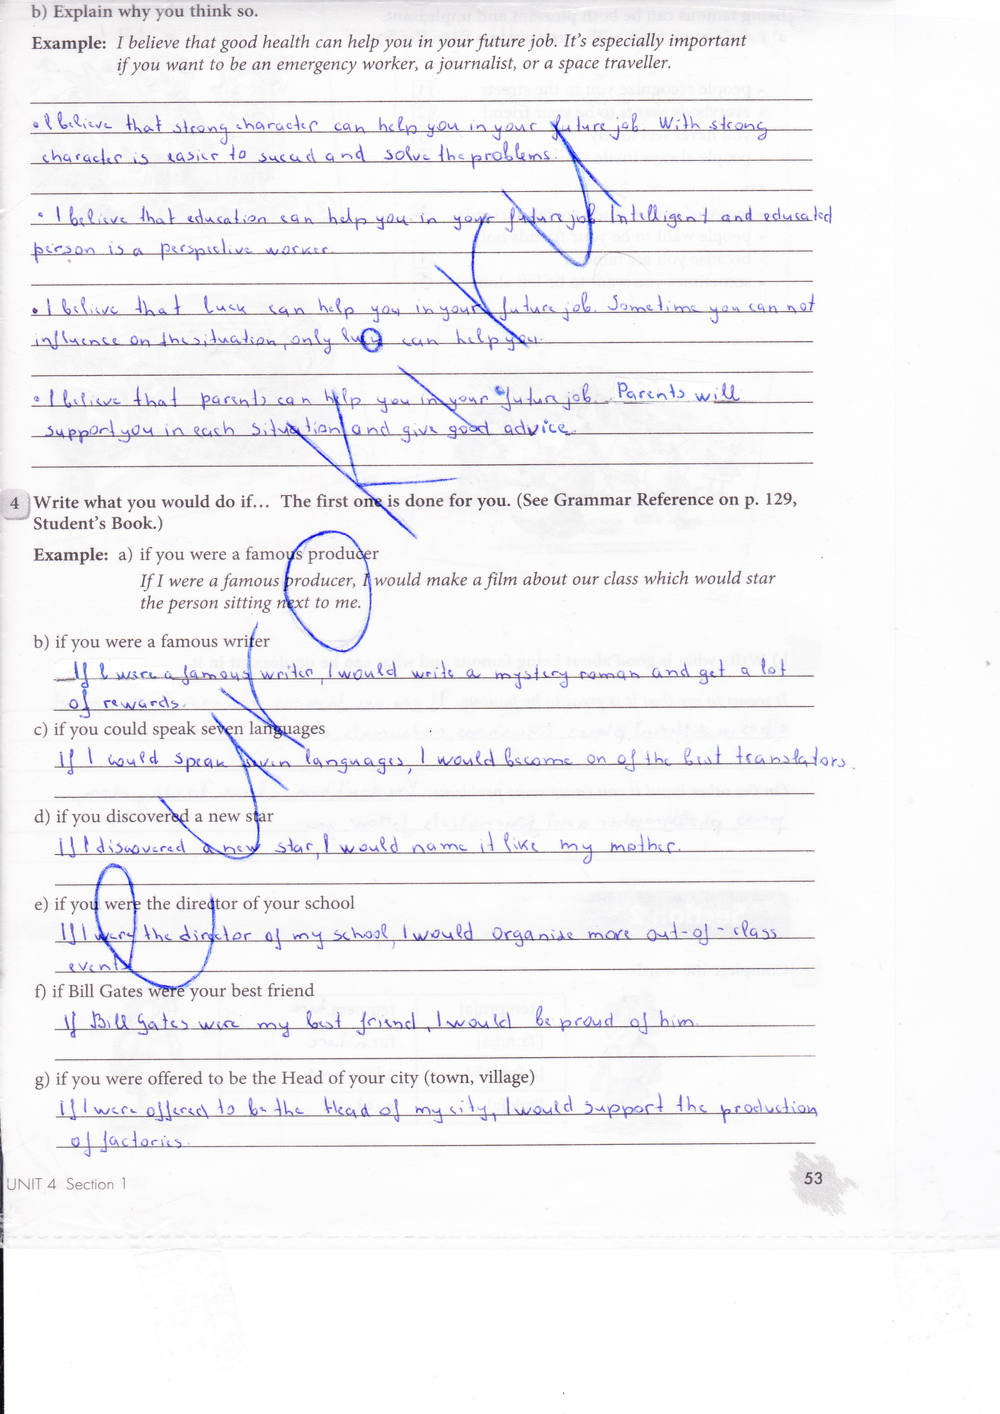 b) Explain why you think so.
Example: I believe that good health can help you in your future job. It's especially important
if you want to be an emergency worker, a journalist, or a space traveller.
• I believe that strong character can help you in your future job. With strong
character is easier to succed and solve the problems.
• I believe that education can help you in your future job. Intelligent and educated
person is a perspective worker.
• I believe that luck can help you in your future job. Sometime you can not
influence on the situation, only can help you.
• I believe that parents can help you in your future job. Parents will
support you in each situation and give good advice.
4 Write what you would do if... The first one is done for you. (See Grammar Reference on p. 129,
Student's Book.)
Example: a) if you were a famous producer
If I were a famous producer, I would make a film about our class which would star
the person sitting next to me.
b) if you were a famous writer
If I were a famous writer, I would write a mystery roman and get a lot
of rewards.
c) if you could speak seven languages
If I could speak seven languages, I would become on of the best translators.
d) if you discovered a new star
If I discovered a new star, I would name it like my mother.
e) if you were the director of your school
If I were the director of my school, I would organise more out-of-class
events
f) if Bill Gates were your best friend
If Bill Gates were my best friend, I would be proud of him.
g) if you were offered to be the Head of your city (town, village)
If I were offered to be the Head of my city, I would support the production
of factories.
UNIT 4 Section 1
53